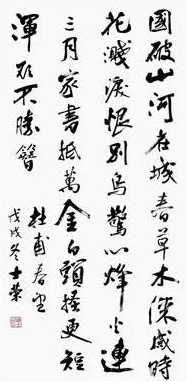 國破山河在城春草木深感時
花濺淚恨別鳥驚心烽火連
三月家書抵萬金白頭搔更短
渾欲不勝簪
杜甫春望
戊戌冬士榮